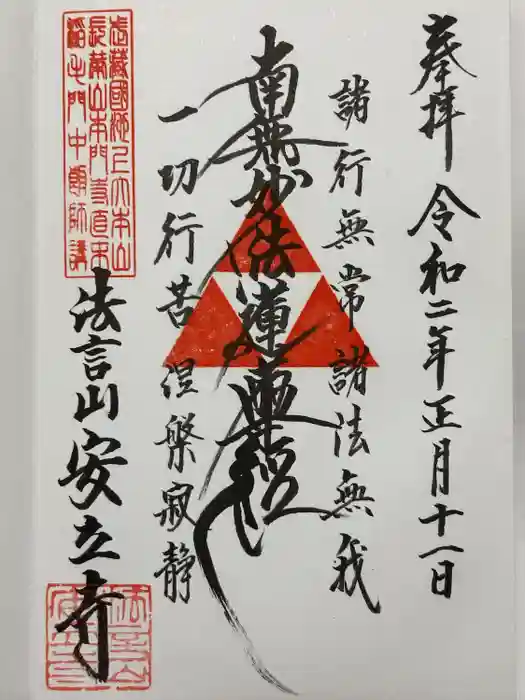 奉拝 令和二年正月十一日
諸行無常 諸法無我
南無妙法蓮華経
一切行苦 涅槃寂静
武蔵國池上大本山
長栄山本門寺直末
法言山安立寺